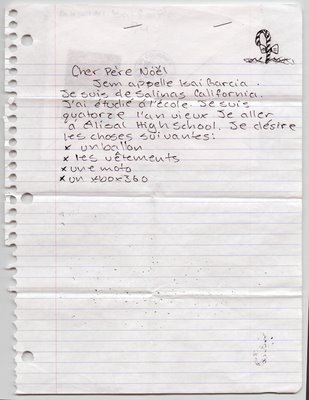 Cher Père Noël
Jem appelle Isai Garcia.
Je suis de Salinas California.
J'ai étudié a l'école. Je suis
quatorze l'an vieux. Je aller
a Alisal High School. Je désire
les choses suivantes:
x un ballon
x les vêtements
x une moto
x un xbox 360